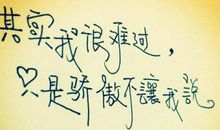 其实我很难过，
♡只是骄傲不讓我説